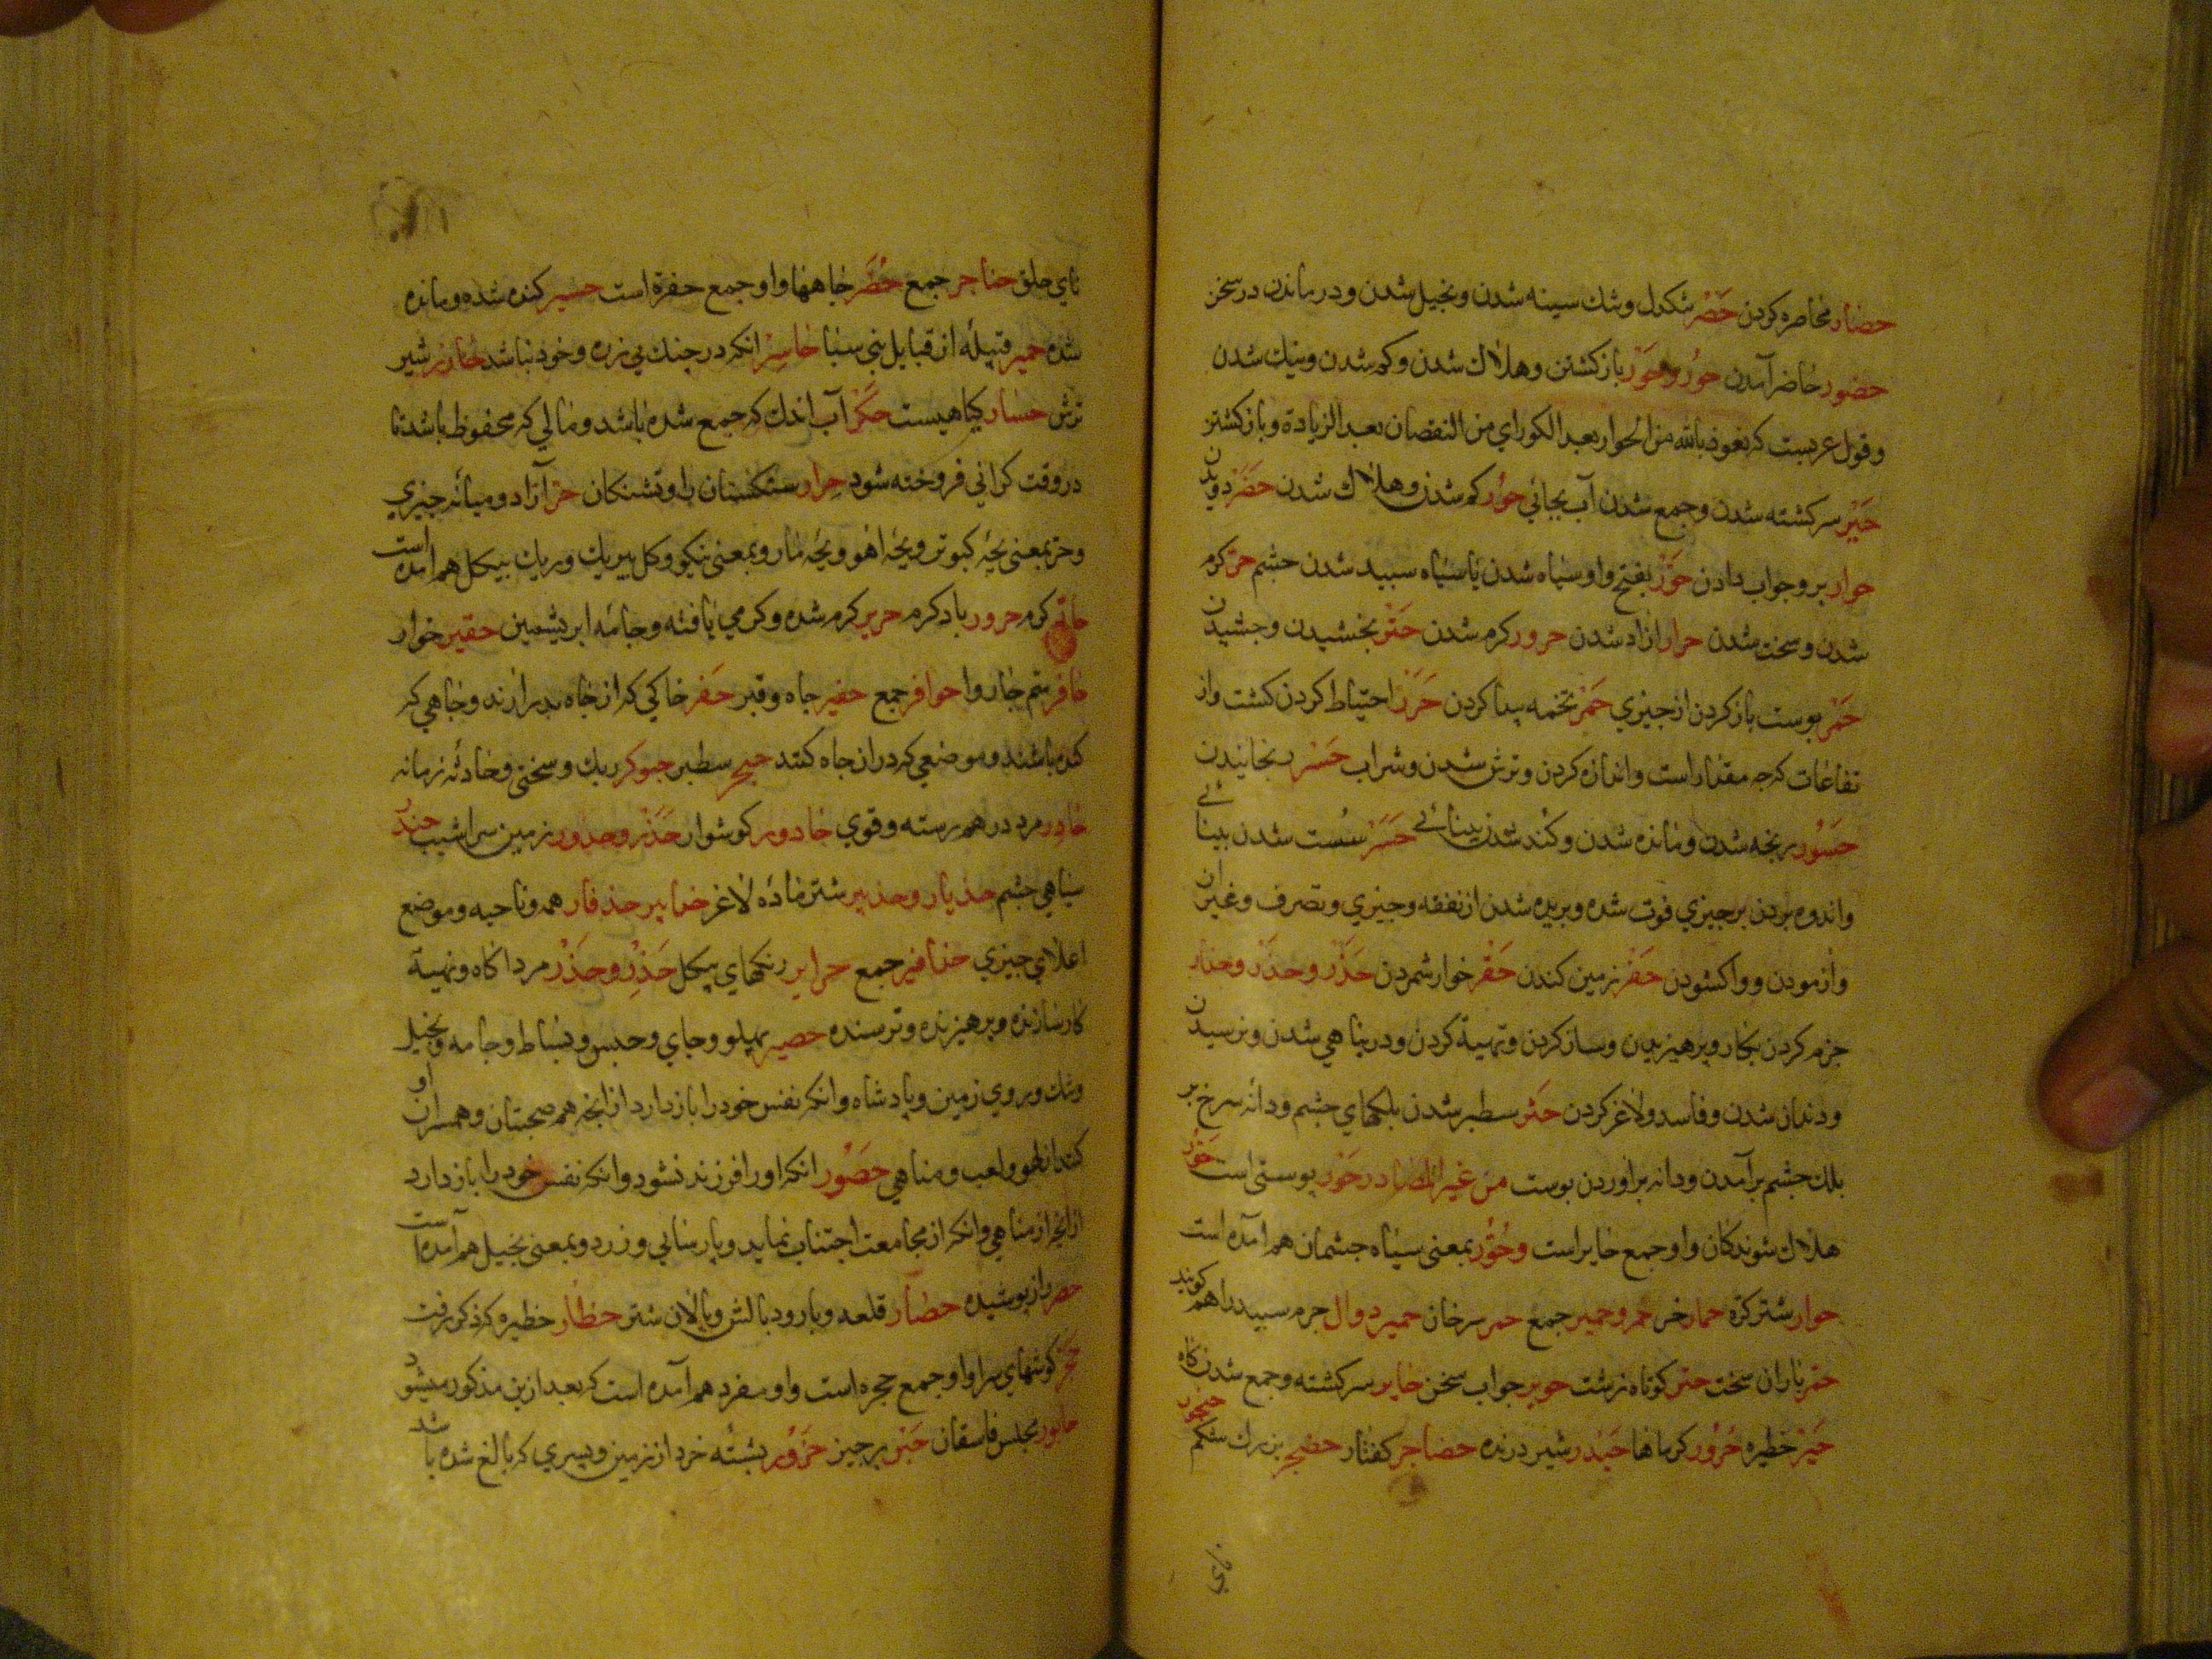 حصار محاصره کردن حَصَر تنکدل وتنك سینه شدن وبخیل شدن ودرماندن درسخن
حضور حاضر آمدن حور وحَوْر بازکشتن وهلاك شدن وکم شدن ونیك شدن
وقول عربست که نعوذ بالله من الحوار بعد الکور ای من النقصان بعد الزیادة وبازکشتن
حَیْر سرکشته شدن وجمع شدن آب بجائی حوُر کم شدن وهلاك شدن حَضَر دویدن
حوار بر وجواب دادن حَوَر بفتح واو سیاه شدن یا سیاه سپید شدن چشم حر کرم
شدن وسخت شدن حرار ازاد شدن حرور کرم شدن حَتْر بخشیدن وچشیدن
حَمْر پوست بازکردن از چیزی حَمَر تخمه پیدا کردن حَرَز احتیاط کردن کشت واز
تفاعات که چه مقدار است واندازه کردن وترش شدن وشراب حَسْر رنجانیدن
حَسُور رنجه شدن ومانده شدن وکُند شدن بینائی حَسَر سُست شدن بینائی
واندوه بردن بر چیزی فوت شده وبریده شدن از نفقه وچیزی وتصرف وغیر ان
وازمودن وواکشودن حَفْر زمین کندن حَقْر خوار شمردن حَذَر وحذْر وحذار
حزم کردن بکار وپرهیزیدن وساز کردن وتهیة کردن ودر پناهی شدن وترسیدن
ودندان شدن وفاسد ولاغر کردن حَثَر سطبر شدن پلکهای چشم ودانه سرخ بر
پلك چشم برآمدن ودانه براوردن پوست من غیر المصادر حَوَر پوستی است حَوُر
هلاك شوندکان واو جمع حایر است وحُوُر بمعنی سیاه چشمان هم آمده است
حوار شتر کره حمار خر حمر وحمیر جمع حمر سرخان حمیر دوال چرم سپید را هم کویند
حتر باران سخت حتر کوتاه زشت حویر جواب سخن حایر سرکشته وجمع شدن کاه
حَیْر خطیره حَرُور کرماها حَیْدر شیر درنده حضاجر کفتار حضجر بزرك شکم حنجور
نای
نای حلق حناجر جمع حُفَر چاهها واو جمع حفرة است حسیر کنده شده ومانده
شده حمیر قبیلۀ از قبایل بنی سبا حاسِر انکه در جنك بی زره وخود نباشد حازر شیر
ترش حسار کیاهیست حَکَر آب اندك که جمع شده باشد ومالی که محفوظ باشد تا
در وقت کرانی فروخته شود حِرار سنکستان با وتشنکان حر آزاد ومیانه چیزی
وحر بمعنی بچۀ کبوتر وبچۀ اهو وبچۀ مار وبمعنی نیکو وکل بیریك وریك بیکل هم آمده است
حار کرم حرور باد کرم حریر کرم شده وکرمی یافته وجامه ابریشمین حقیر خوار
حافر سُم چاروا حوافر جمع حفیر چاه وقبر حَفَر خاکی که از چاه بدر ارند وچاهی که
کنده باشند وموضعی که دران چاه کنند حبجر سطبر حبوکر ریك وسختی وحادثه زمانه
حادِر مرد درهم رسته وقوی حادور کوشوار حَدْر وحدور زمین سراشیب حندر
سیاهی چشم حذبار وحذبیر شتر مادۀ لاغر حذابیر حذفار همه وناحیه وموضع
اعلای چیزی حذافیر جمع حرابر رنکهای بیکل حَذِر وحَذُر مرد اکاه وتهیة
کارسازنده وپرهیزنده وترسنده حصیر پهلو وجای وحبس وبساط وجامه وبخیل
وتنك وروی زمین وپادشاه وانکه نفس خود را بازدارد از انچه هم صحبتان وهمسران او
کنند از لهو ولعب ومناهی حَصُور انکه اورا فرزند نشود وانکه نفس خود را بازدارد
از انچه از مناهی وانکه از مجامعت اجتناب نماید وپارسایی وزرد وبمعنی بخیل هم آمده است
حصر راز پوشیده حصار قلعه وبارو وبالش وپالان شتر حظار خطیره که ذکر رفت
حجر کوشهای سرا واو جمع حجره است واو مفرد هم آمده است که بعد ازین مذکور میشود
حابور مجلس فاسقان حَبْر برچیز حَزَوَّر پشته خرد از زمین وپسری که بالغ شده باشد